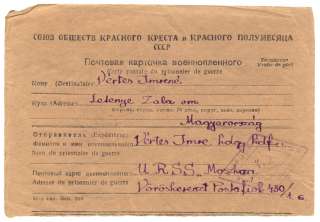 СОЮЗ ОБЩЕСТВ КРАСНОГО КРЕСТА и КРАСНОГО ПОЛУМЕСЯЦА
СССР
Почтовая карточка военнопленного
Carte postale du prisonnier de guerre
Бесплатно
Franc de port
Кому (Destinataire) Vértes Imréné
Куда (Adresse) Letenye Zala vm.
Magyarország
Отправитель (Expéditeur)
Фамилия и имя военнопленного Vértes Imre
Nom du prisonnier de guerre
Почтовый адрес военнопленного U.R.S.S. Moszkva
Adresse du prisonnier de guerre
Vöröskereszt Postafiók